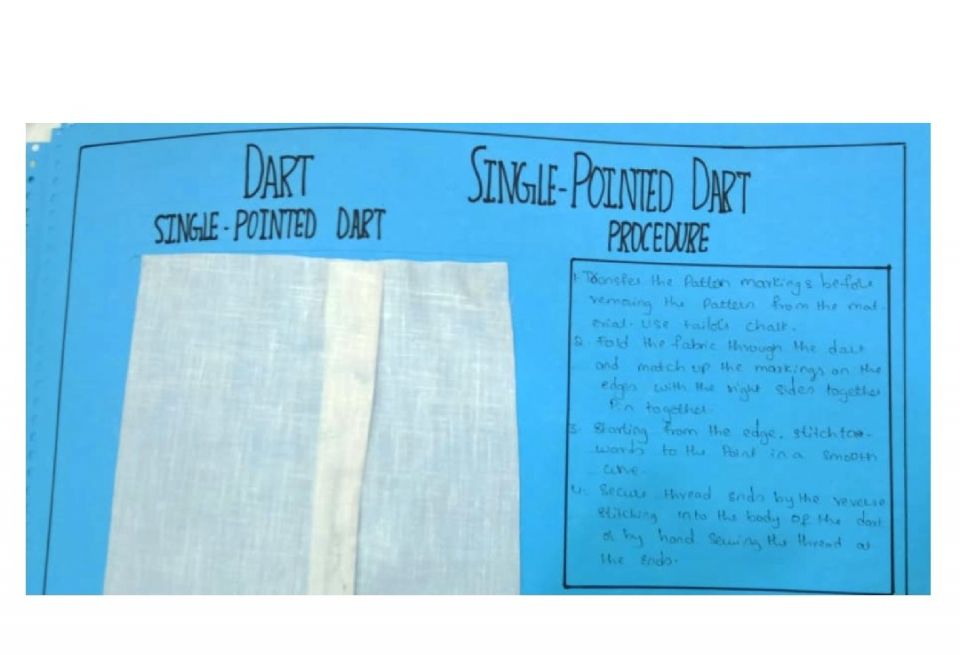 DART
SINGLE-POINTED DART
SINGLE-POINTED DART
PROCEDURE
1. Transfer the Pattern markings before
removing the Pattern from the mat-
erial. Use tailor's chalk.
2. Fold the fabric through the dart
and match up the markings on the
edges with the right sides together
Pin together.
3. Starting from the edge, stitch to-
wards to the Point in a smooth
curve.
4. Secure thread ends by the reverse
stitching into the body of the dart
or by hand sewing the thread at
the ends.